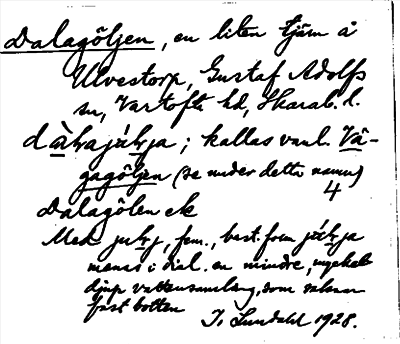 Dalagöljen, en liten tjärn å
Ulvestorp, Gustaf Adolfs
sn, Vartofta hd, Skarab. l.
; kallas vanl. Vå-
gagöljen (se under detta namn)
4
Dalagölen ek
Med julɽj, fem., best. form
menas i dial. en mindre, mycket
djup vattensamling, som saknar
fast botten
I. Lundahl 1928.